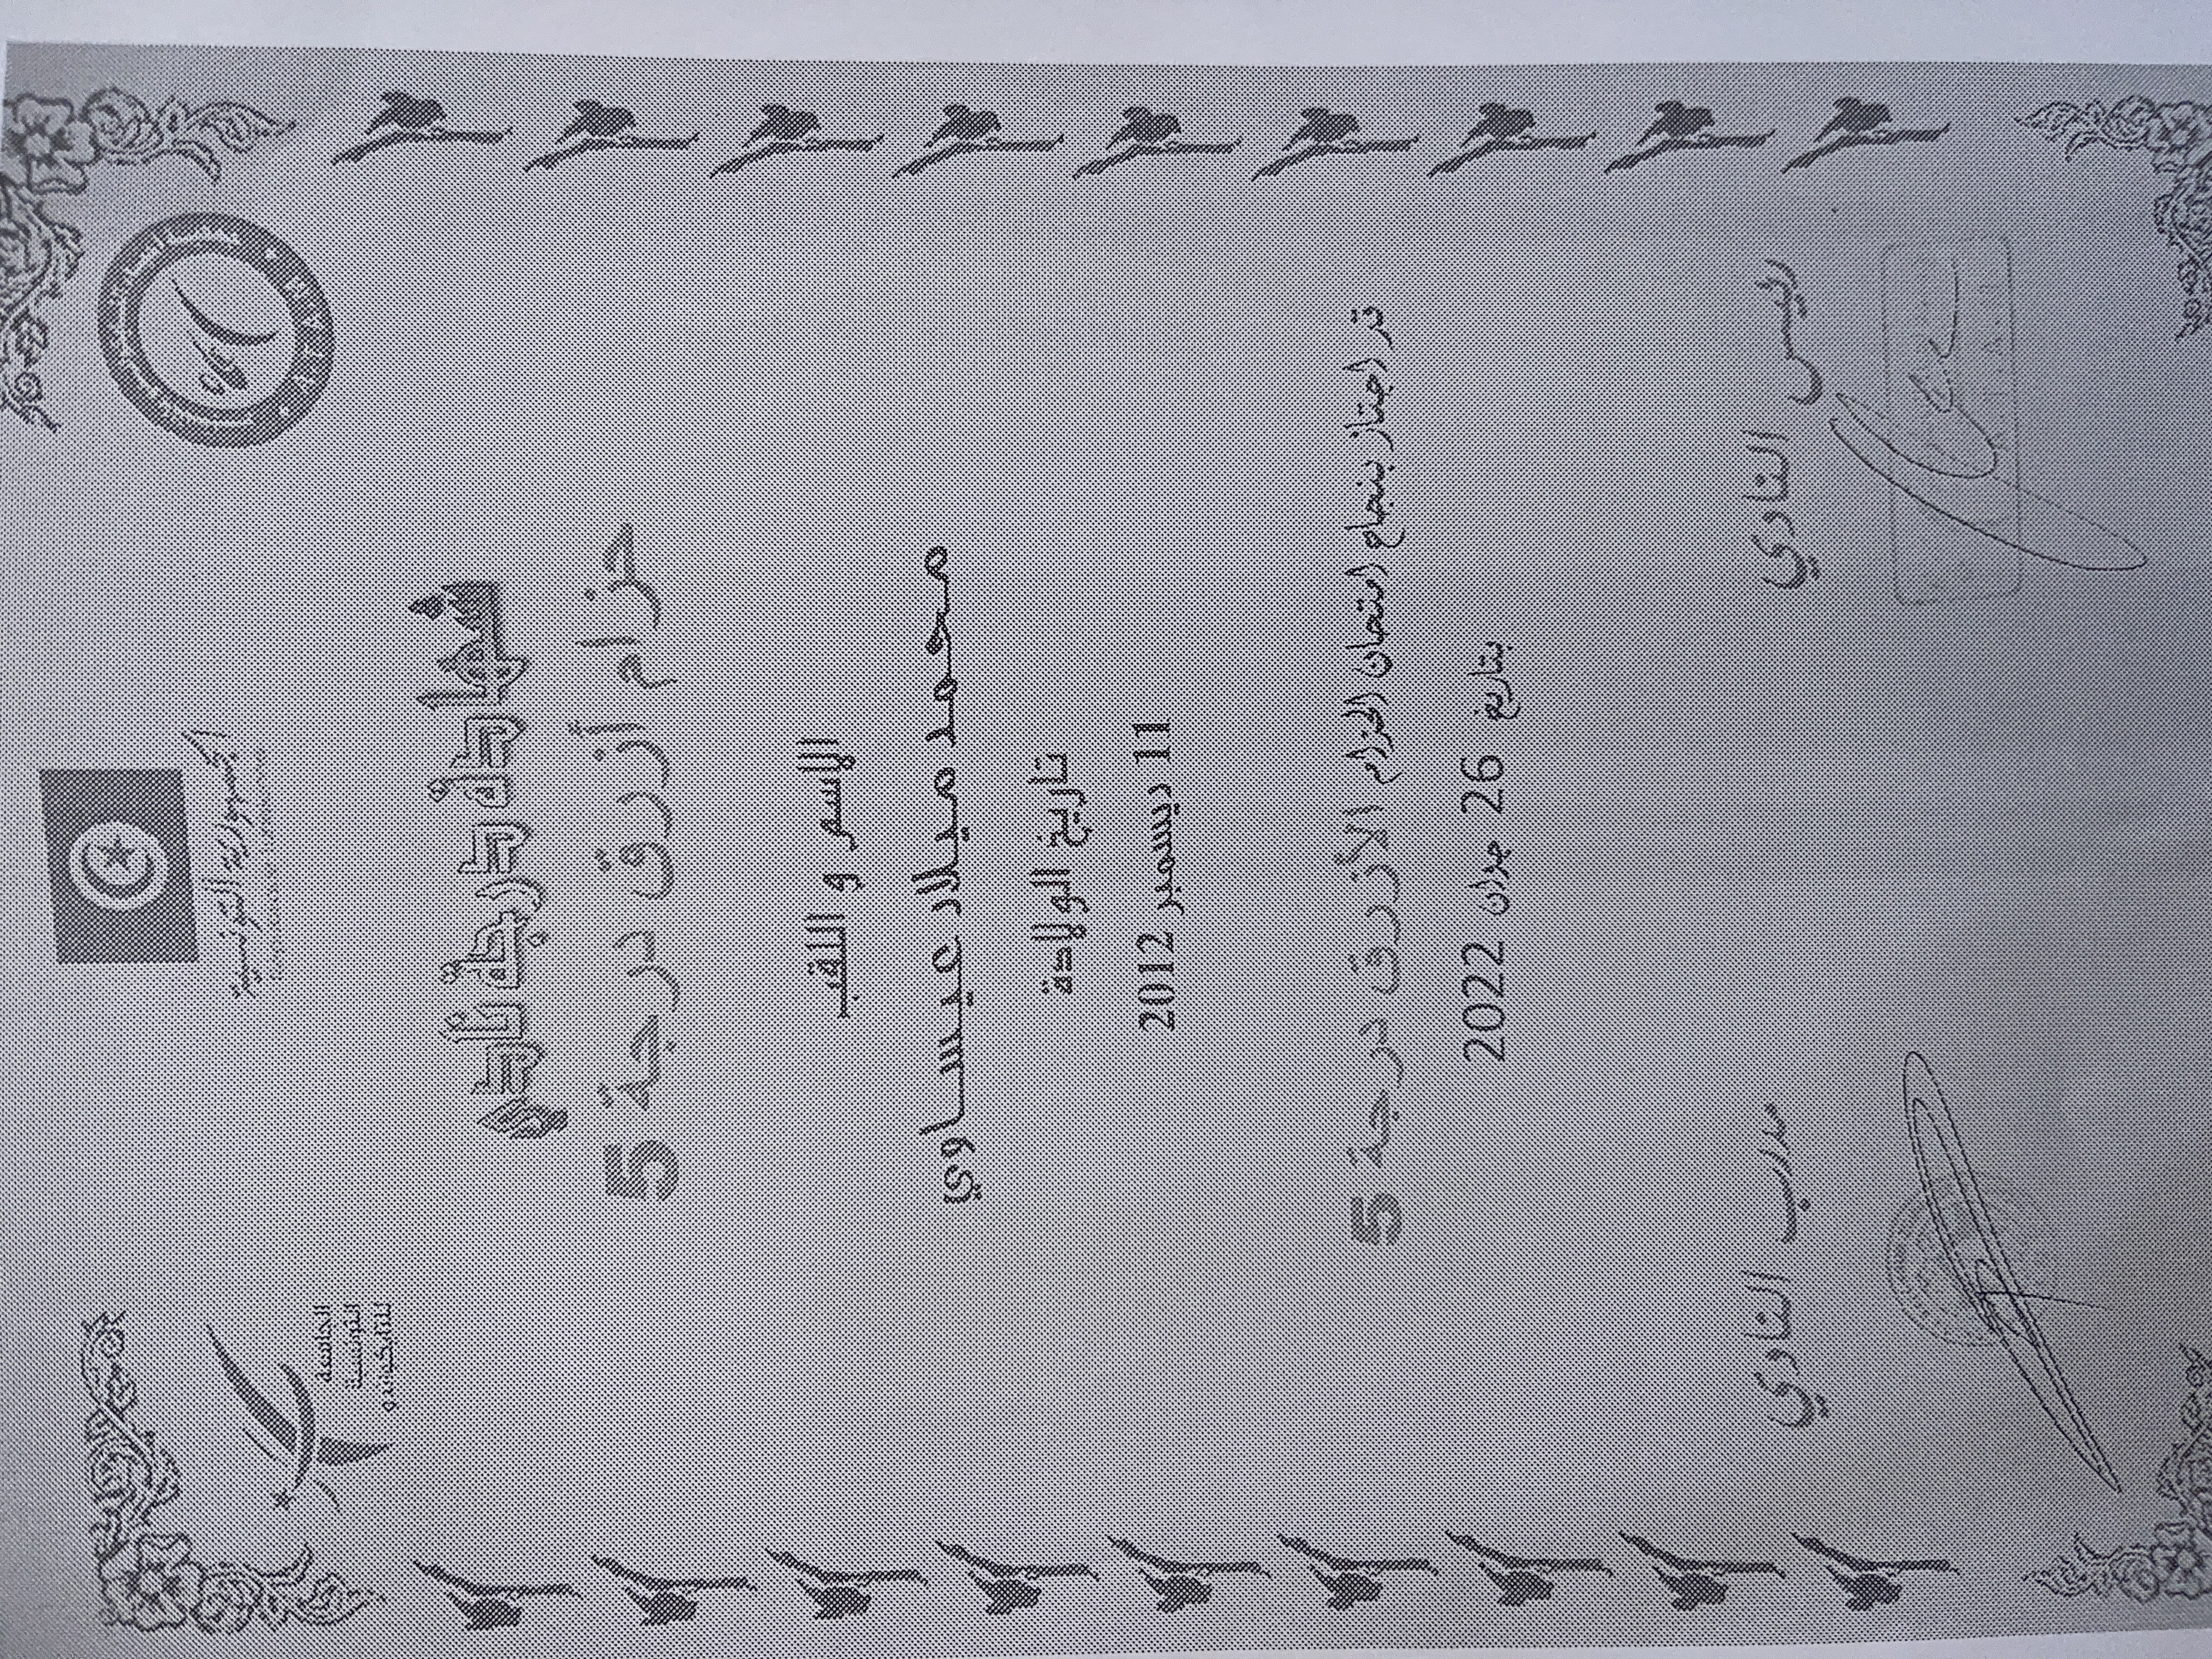 الجمهورية التونسية
الجامعة
التونسية
للتايكوندو
شهادة درجة تأهيل
حزام أزرق درجة 5
الإسم و اللقب
محمد ميلاد عيساوي
تاريخ الولادة
11 ديسمبر 2012
قد اجتاز بنجاح امتحان الحزام الأزرق درجة 5
بتاريخ 26 جوان 2022
رئيس النادي
مدرب النادي